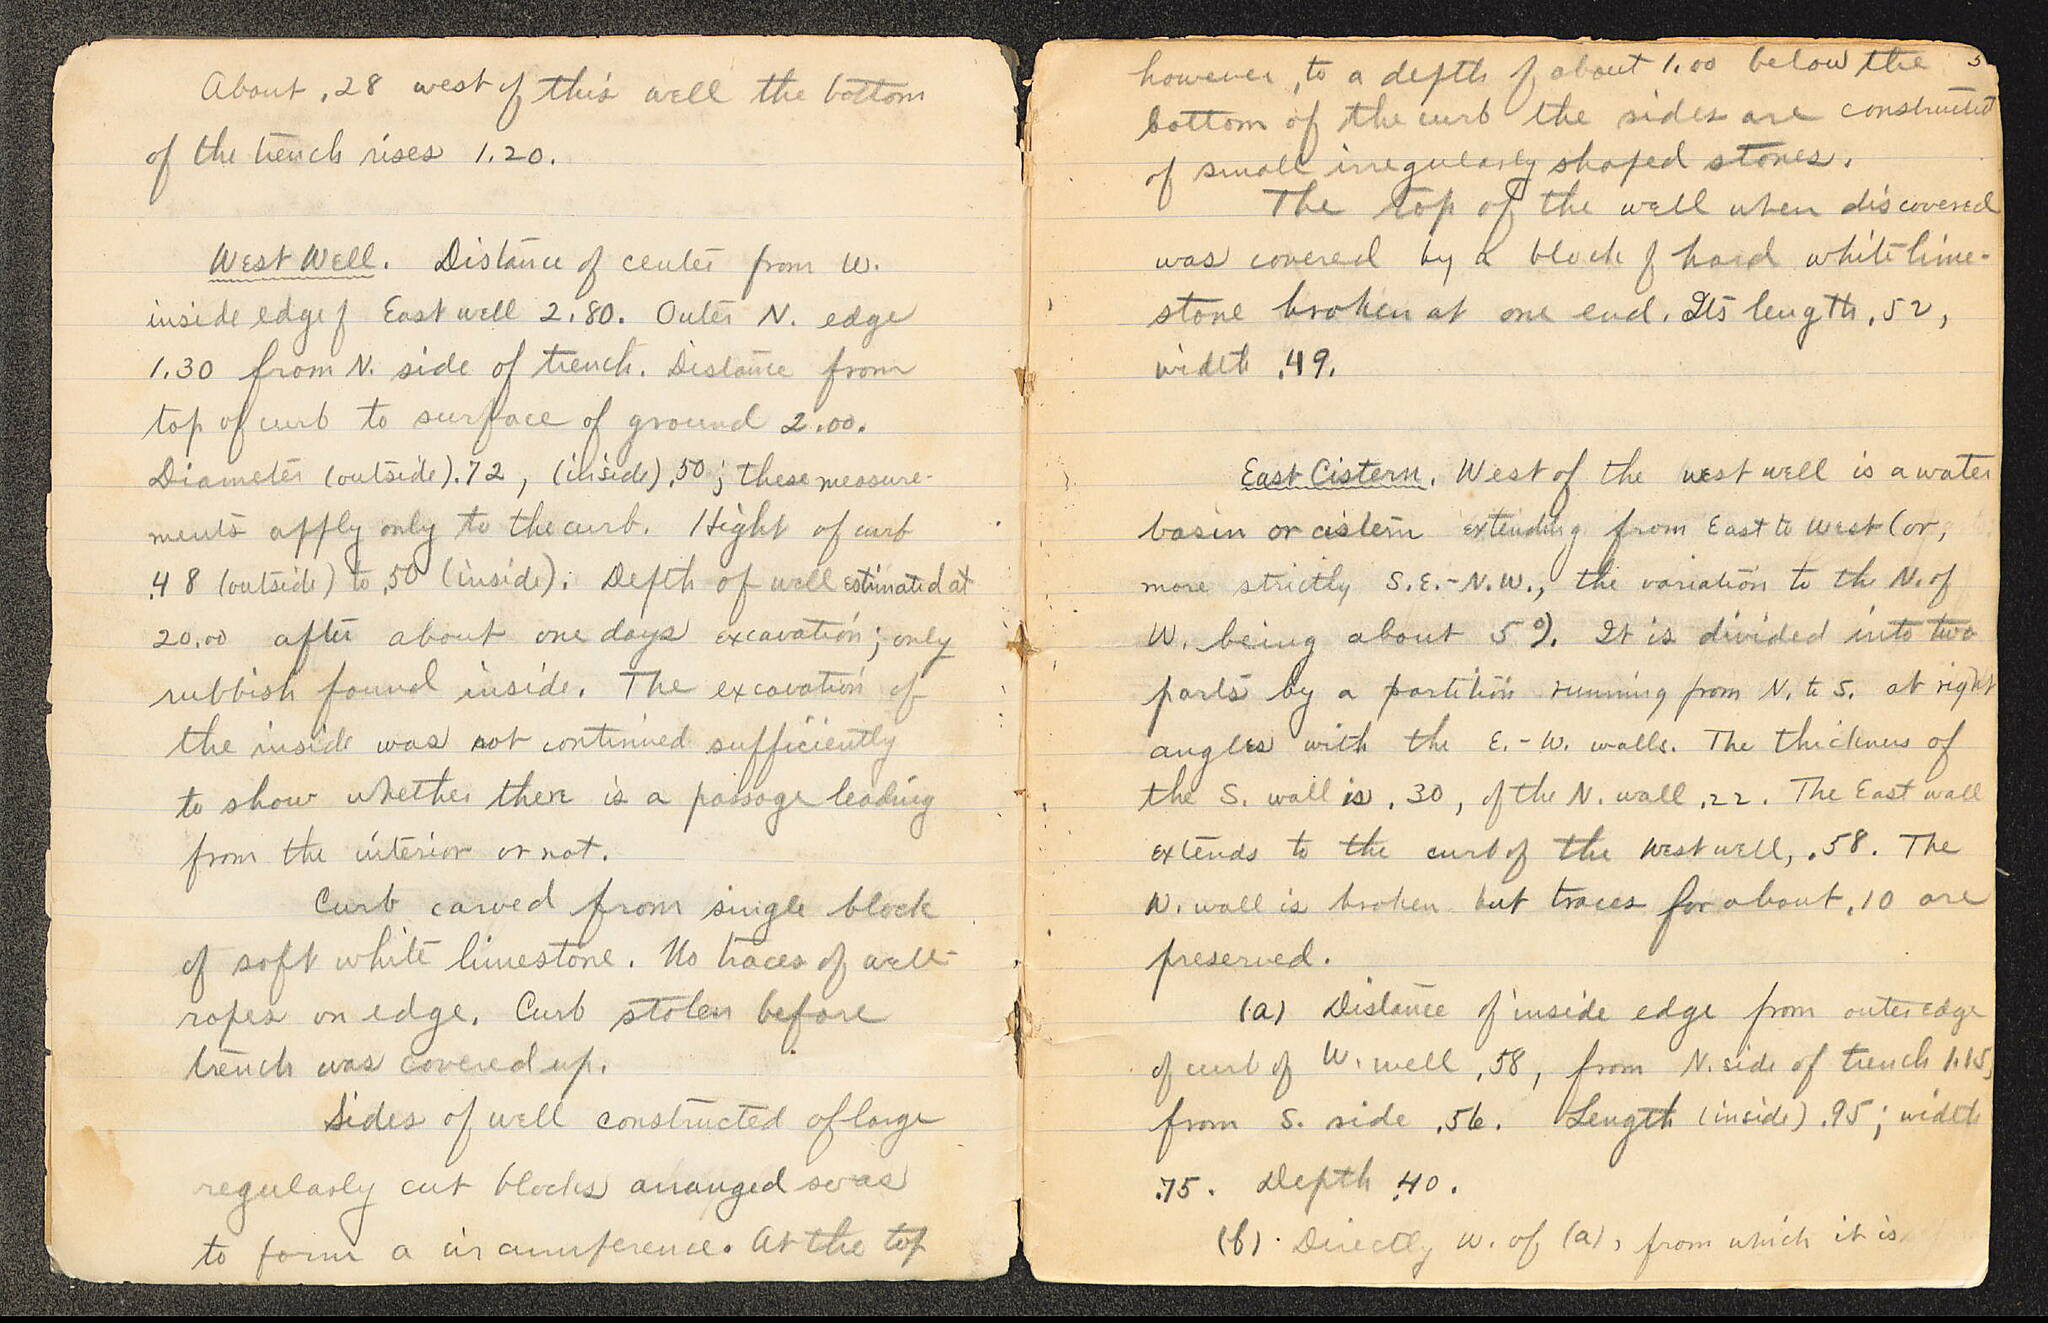 About .28 west of this well the bottom
of the trench rises 1.20.
West Well. Distance of center from W.
inside edge of East well 2.80. Outer N. edge
1.30 from N. side of trench. Distance from
top of curb to surface of ground 2.00.
Diameter (outside) .72, (inside) .50; these measure-
ments apply only to the curb. Hight of curb
.48 (outside) to .50 (inside). Depth of well estimated at
20.00 after about one days excavation; only
rubbish found inside. The excavation of
the inside was not continued sufficiently
to show whether there is a passage leading
from the interior or not.
Curb carved from single block
of soft white limestone. No traces of well-
ropes on edge. Curb stolen before
trench was covered up.
Sides of well constructed of large
regularly cut blocks arranged so as
to form a circumference. At the top
5
however, to a depth of about 1.00 below the
bottom of the curb the sides are constructed
of small irregularly shaped stones.
The top of the well when discovered
was covered by a block of hard white lime-
stone broken at one end. Its length .52,
width .49.
East Cistern. West of the west well is a water
basin or cistern extending from East to West (or,
more strictly S.E.-N.W., the variation to the N. of
W. being about 5°). It is divided into two
parts by a partition running from N. to S. at right
angles with the E.-W. walls. The thickness of
the S. wall is .30, of the N. wall .22. The East wall
extends to the curb of the West well, .58. The
W. wall is broken but traces for about .10 are
preserved.
(a) Distance of inside edge from outer edge
of curb of W. well .58, from N. side of trench 1.15,
from S. side .56. Length (inside) .95; width
.75. Depth .40.
(b). Directly W. of (a), from which it is